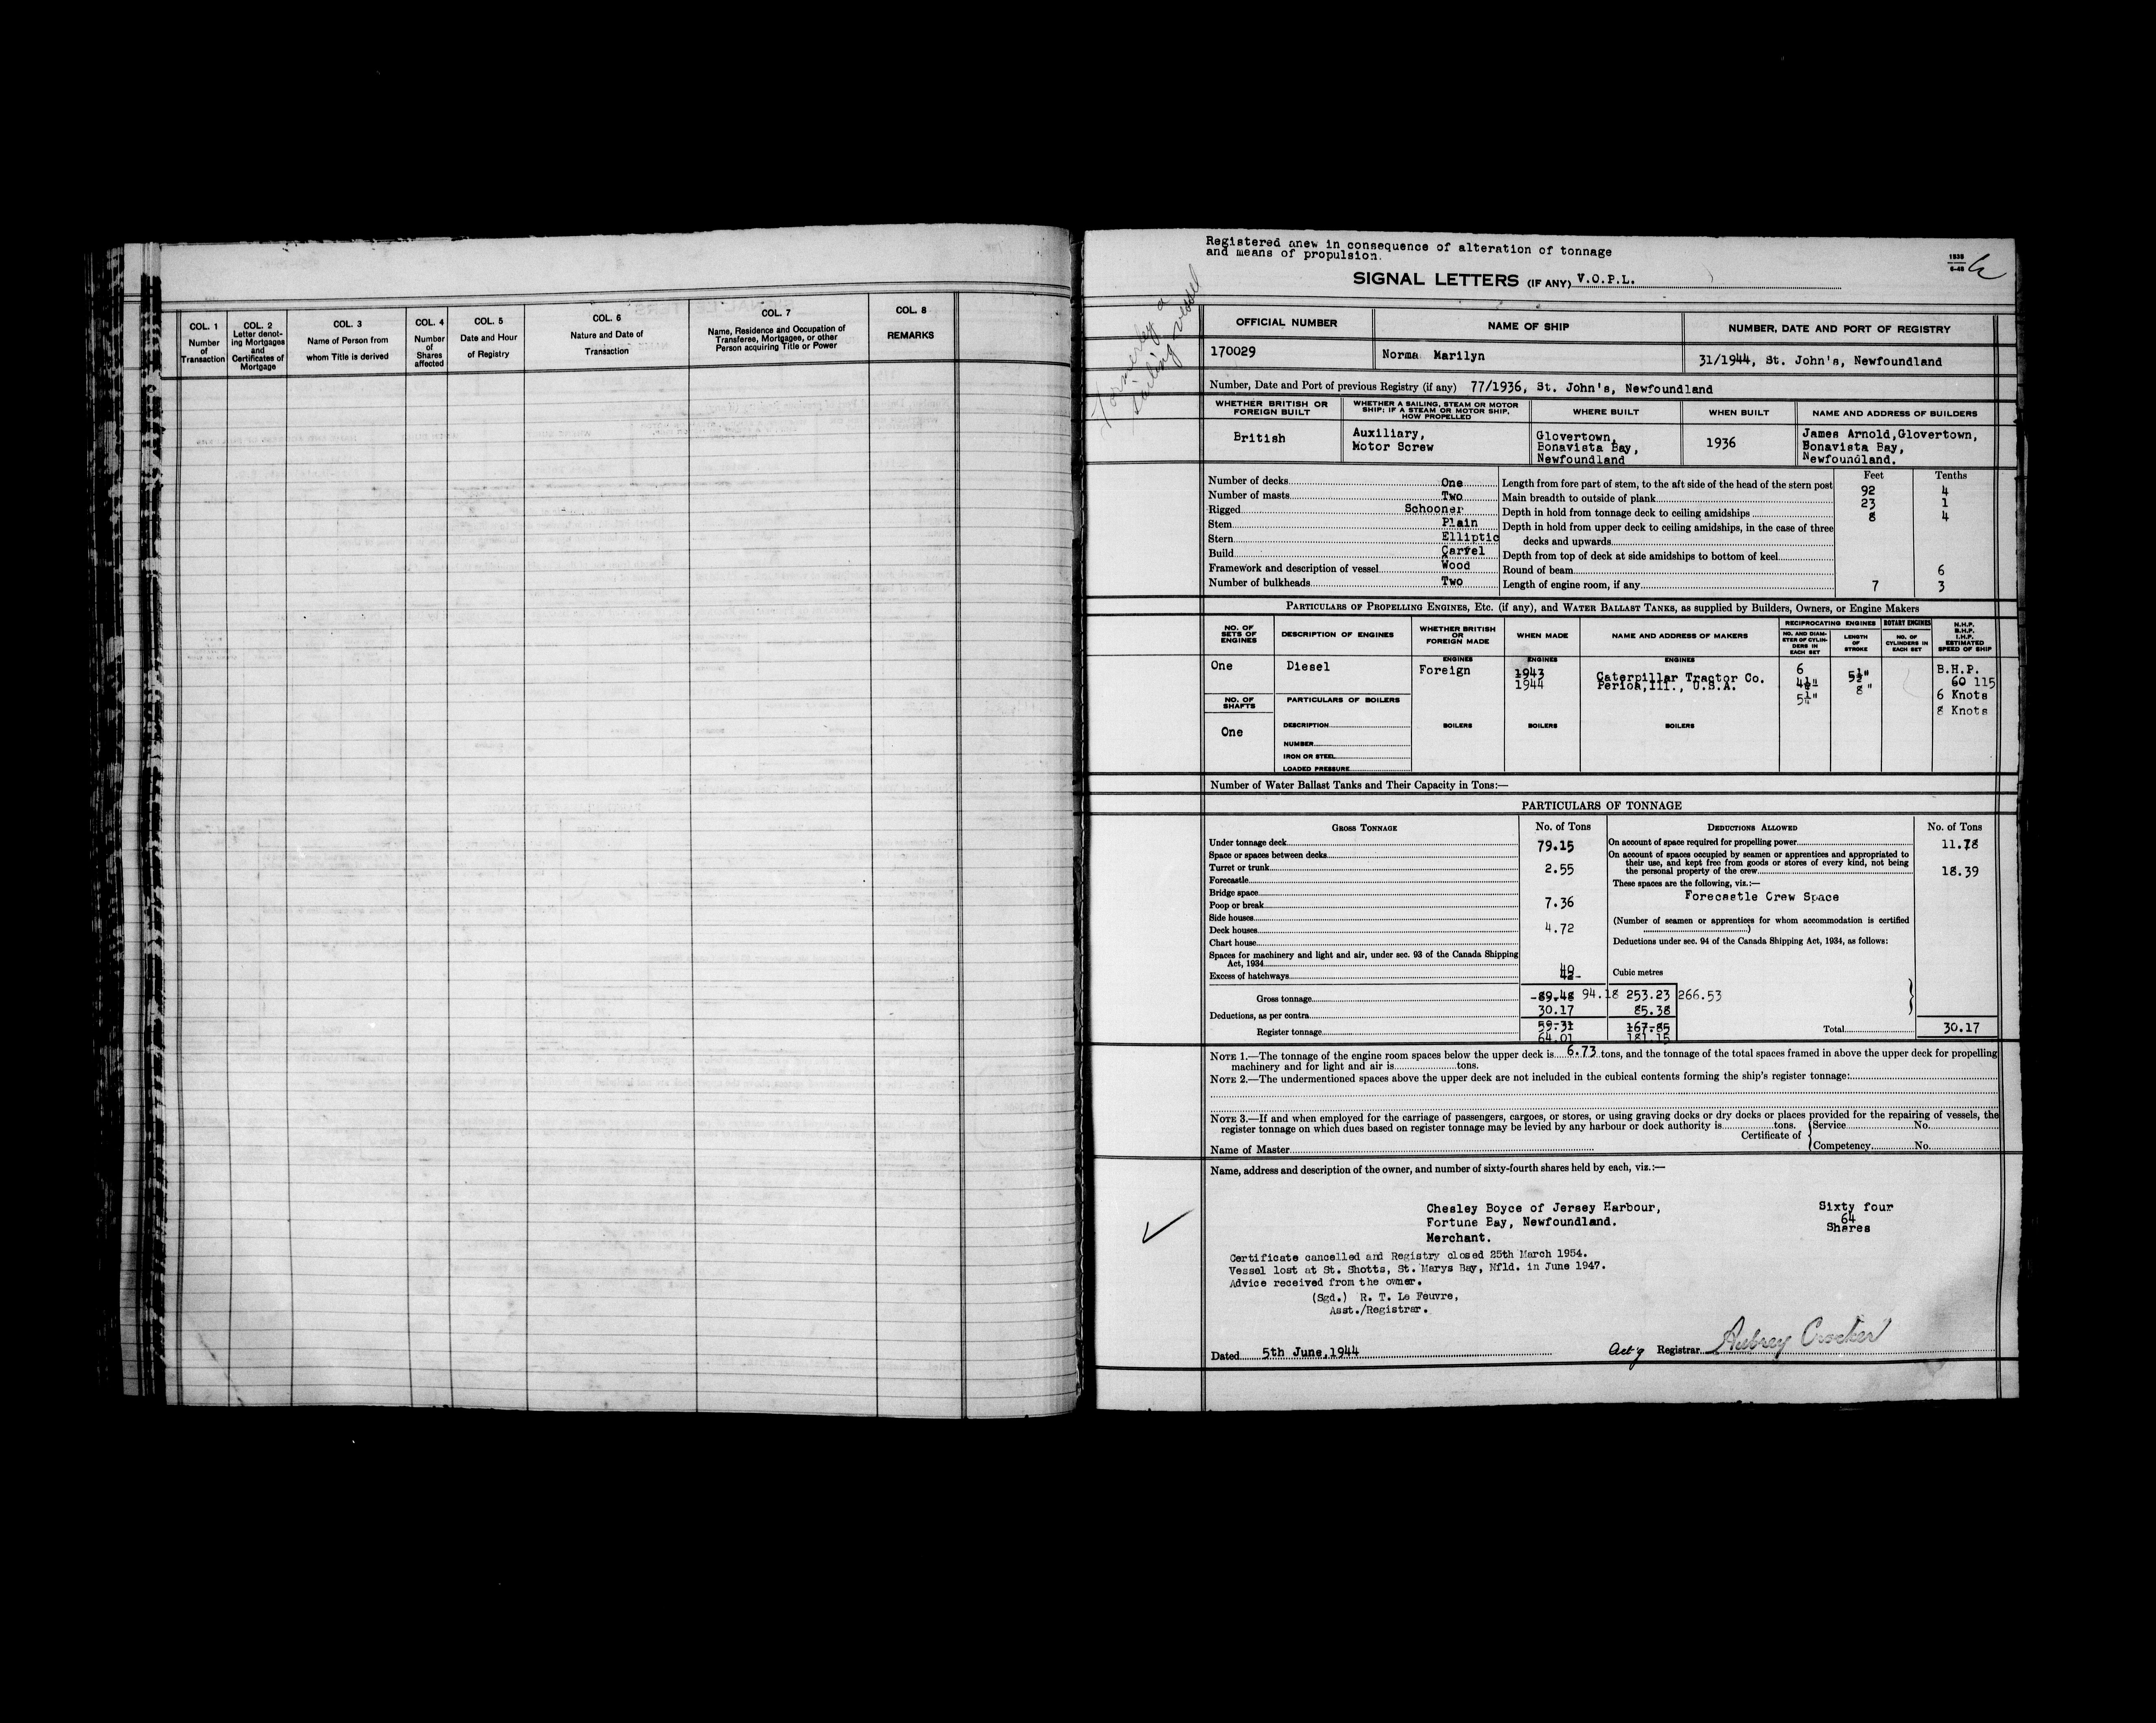 COL. 1
Number
of
Transaction
COL. 2
Letter denot-
ing Mortgages
and
Certificates of
Mortgage
COL. 3
Name of Person from
whom Title is derived
COL. 4
Number
of
Shares
affected
COL. 5
Date and Hour
of Registry
COL. 6
Nature and Date of
Transaction
COL. 7
Name, Residence and Occupation of
Transferee, Mortgagee, or other
Person acquiring Title or Power
COL. 8
REMARKS
Registered anew in consequence of alteration of tonnage
and means of propulsion.
SIGNAL LETTERS (IF ANY) V.O.P.L.
Formerley a
sailing vessel
OFFICIAL NUMBER NAME OF SHIP NUMBER, DATE AND PORT OF REGISTRY
170029 Norma Marilyn 31/1944, St. John's, Newfoundland
Number, Date and Port of previous Registry (if any) 77/1936, St. John's, Newfoundland
WHETHER BRITISH OR
FOREIGN BUILT
WHETHER A SAILING, STEAM OR MOTOR
SHIP; IF A STEAM OR MOTOR SHIP,
HOW PROPELLED
WHERE BUILT
WHEN BUILT
NAME AND ADDRESS OF BUILDERS
British
Auxiliary,
Motor Screw
Glovertown,
Bonavista Bay,
Newfoundland
1936
James Arnold,Glovertown,
Bonavista Bay,
Newfoundland.
Feet Tenths
Number of decks One
Number of masts Two
Rigged Schooner
Stem Plain
Stern Elliptic
Build Carvel
Framework and description of vessel Wood
Number of bulkheads Two
Length from fore part of stem, to the aft side of the head of the stern post 92 4
Main breadth to outside of plank 23 1
Depth in hold from tonnage deck to ceiling amidships 8 4
Depth in hold from upper deck to ceiling amidships, in the case of three
decks and upwards
Depth from top of deck at side amidships to bottom of keel
Round of beam 6
Length of engine room, if any 7 3
PARTICULARS OF PROPELLING ENGINES, ETC. (if any), and WATER BALLAST TANKS, as supplied by Builders, Owners, or Engine Makers
NO. OF
SETS OF
ENGINES
DESCRIPTION OF ENGINES
WHETHER BRITISH
OR
FOREIGN MADE
WHEN MADE
NAME AND ADDRESS OF MAKERS
RECIPROCATING ENGINES
NO. AND DIAM-
ETER OF CYLIN-
DERS IN
EACH SET
LENGTH
OF
STROKE
ROTARY ENGINES
NO. OF
CYLINDERS IN
EACH SET
N.H.P.
B.H.P.
I.H.P.
ESTIMATED
SPEED OF SHIP
One
Diesel
ENGINES
Foreign
ENGINES
1943
1944
ENGINES
Caterpillar Tractor Co.
Perioa,Ill., U.S.A.
6
4½"
5¼"
5½"
8"
B.H.P.
60 115
6 Knots
8 Knots
NO. OF
SHAFTS
One
PARTICULARS OF BOILERS
DESCRIPTION
NUMBER
IRON OR STEEL
LOADED PRESSURE
BOILERS
BOILERS
BOILERS
Number of Water Ballast Tanks and Their Capacity in Tons:—
PARTICULARS OF TONNAGE
GROSS TONNAGE No. of Tons
Under tonnage deck 79.15
Space or spaces between decks
Turret or trunk 2.55
Forecastle
Bridge space
Poop or break 7.36
Side houses
Deck houses 4.72
Chart house
Spaces for machinery and light and air, under sec. 93 of the Canada Shipping
Act, 1934
Excess of hatchways
Gross tonnage 89.48 94.18 253.23 266.53
Deductions, as per contra 30.17 85.38
Register tonnage 59.31 167.85
64.01 181.15
DEDUCTIONS ALLOWED No. of Tons
On account of space required for propelling power 11.78
On account of spaces occupied by seamen or apprentices and appropriated to
their use, and kept free from goods or stores of every kind, not being
the personal property of the crew 18.39
These spaces are the following, viz.:—
Forecastle Crew Space
(Number of seamen or apprentices for whom accommodation is certified
)
Deductions under sec. 94 of the Canada Shipping Act, 1934, as follows:
Cubic metres
Total 30.17
NOTE 1.—The tonnage of the engine room spaces below the upper deck is 6.73 tons, and the tonnage of the total spaces framed in above the upper deck for propelling
machinery and for light and air is tons.
NOTE 2.—The undermentioned spaces above the upper deck are not included in the cubical contents forming the ship's register tonnage:
NOTE 3.—If and when employed for the carriage of passengers, cargoes, or stores, or using graving docks or dry docks or places provided for the repairing of vessels, the
register tonnage on which dues based on register tonnage may be levied by any harbour or dock authority is tons.
Name of Master
Certificate of
Service No.
Competency No.
Name, address and description of the owner, and number of sixty-fourth shares held by each, viz.:—
Chesley Boyce of Jersey Harbour,
Fortune Bay, Newfoundland.
Merchant.
Sixty four
64
Shares
Certificate cancelled and Registry closed 25th March 1954.
Vessel lost at St. Shotts, St. Marys Bay, Nfld. in June 1947.
Advice received from the owner.
(Sgd.) R. T. Le Feuvre,
Asst./Registrar.
Dated 5th June,1944
Act'g Registrar Aubrey Crocker